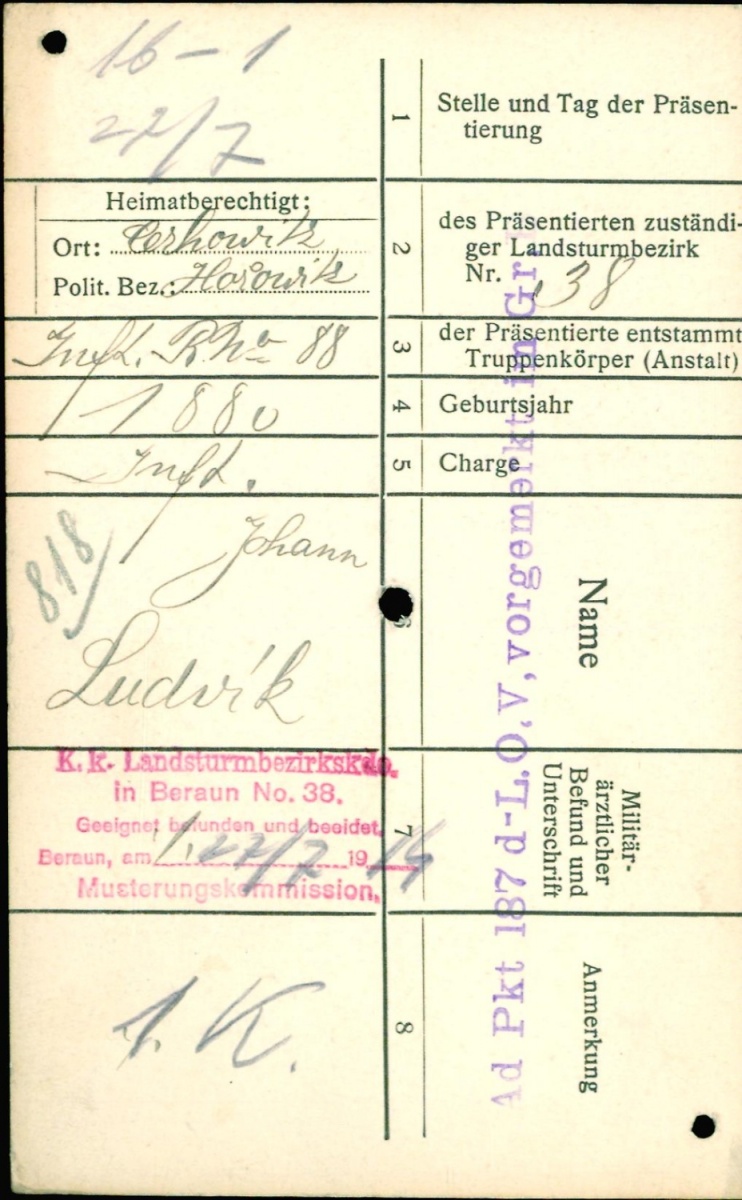 16 - 1
27/7
1
Stelle und Tag der Präsen-
tierung
Heimatberechtigt:
Ort: Cerhowitz
Polit. Bez.: Hořowitz
2
des Präsentierten zuständi-
ger Landsturmbezirk
Nr. 38
Inft. R. No 88
3
der Präsentierte entstammt
Truppenkörper (Anstalt)
1880
4
Geburtsjahr
Inft.
5
Charge
Johann
818
Ludvík
6
Name
K. k. Landsturmbezirkskdo.
in Beraun No. 38.
Geeignet befunden und beeidet.
Beraun, am 27/7 1914
Musterungskommission.
7
Militär-
ärztlicher
Befund und
Unterschrift
1 K.
8
Anmerkung
Ad Pkt 187 d-L.O.V, vorgemerkt in Gr.